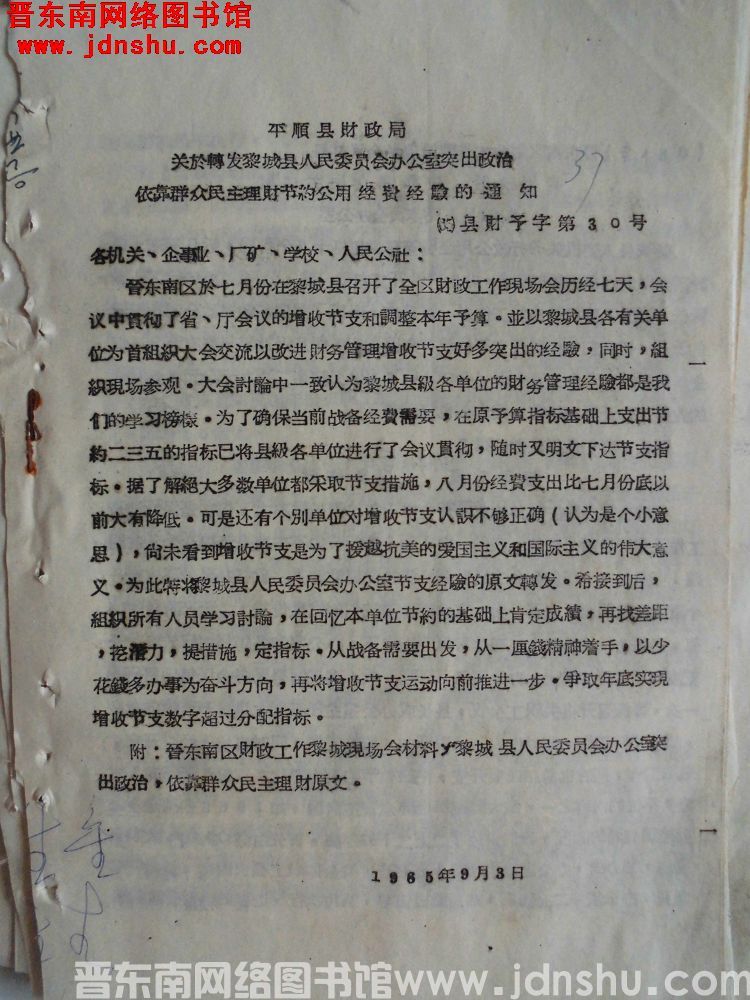 晋东南网络图书馆
www.jdnshu.com
平順县財政局
关於轉发黎城县人民委員会办公室突出政治
依靠群众民主理財节約公用経費経驗的通知
37
县財予字第30号
各机关、企事业、厂矿、学校、人民公社：
晉东南区於七月份在黎城县召开了全区財政工作現場会历经七天，会
议中貫彻了省、厅会议的增收节支和調整本年予算。並以黎城县各有关单
位为首組織大会交流以改进財务管理增收节支好多突出的经驗，同时，組
織現场参观。大会討論中一致认为黎城县級各单位的財务管理经驗都是我
们的学习榜樣。为了确保当前战备经費需要，在原予算指标基础上支出节
約二三五的指标已将县級各单位进行了会议貫彻，随时又明文下达节支指
标。据了解絕大多数单位都采取节支措施，八月份经費支出比七月份底以
前大有降低。可是还有个別单位对增收节支认識不够正确（认为是个小意
思），尙未看到增收节支是为了援越抗美的爱国主义和国际主义的伟大意
义。为此特将黎城县人民委員会办公室节支经驗的原文轉发。希接到后，
組織所有人員学习討論，在回忆本单位节約的基础上肯定成績，再找差距
，挖潛力，提措施，定指标。从战备需要出发，从一厘錢精神着手，以少
花錢多办事为奋斗方向，再将增收节支运动向前推进一步。爭取年底实現
增收节支数字超过分配指标。
附：晉东南区財政工作黎城現场会材料 黎城县人民委員会办公室突
出政治，依靠群众民主理財原文。
1965年9月3日
晋东南网络图书馆www.jdnshu.com